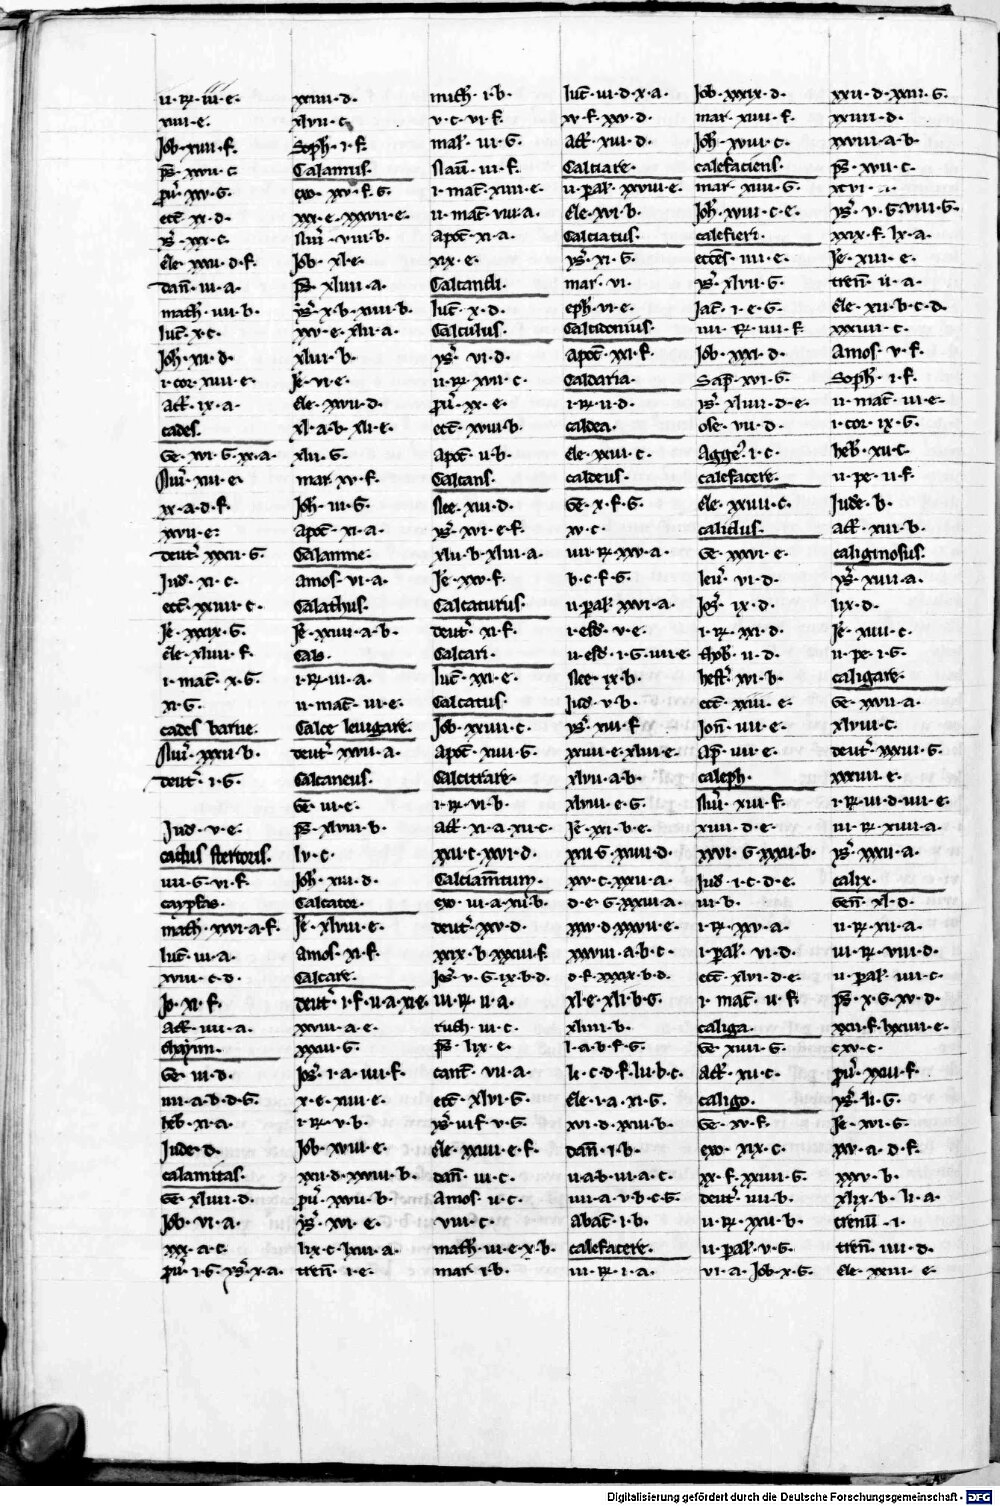 ii · R · iii · e ·
xiiii · e ·
Job · xiiii · f ·
ps · xvii · c
pu · xv · G ·
ecc · xi · d ·
ys · xxx · c ·
eze · xxii · d · f ·
dan · iii · a ·
math · iiii · b ·
luc · x · c ·
Joh · xi · d ·
i · cor · xiiii · e ·
act · ix · a ·
cades ·
Ge · xvi · G · xx · a ·
Nu · xiii · e ·
xx · a · d · f ·
xxvii · e ·
deut · xxxii · G ·
Jud · xi · c ·
ecc · xxiiii · c ·
Je · xxix · G ·
eze · xliiii · f ·
i · mac · x · G ·
xi · G ·
cades barne ·
Nu · xxxii · b ·
deut · i · G ·
Jud · v · e ·
casus stercoris ·
iiii · G · vi · f ·
cayphas ·
math · xxvi · a · f ·
luc · iii · a ·
xviii · c · d ·
Jo · xi · f ·
act · iiii · a ·
chayim ·
Ge · iii · d ·
iiii · a · b · d · G ·
heb · xi · a ·
Jude · d ·
calamitas ·
Ge · xliiii · d ·
Job · vi · a ·
xxx · a · c ·
pu · i · G · ys · x · a ·
xxiiii · d ·
xlvii · c
Soph · i · f ·
Calamus ·
exo · xxv · f · G ·
xxx · e · xxxvii · e ·
Nu · viii · b ·
Job · xl · e ·
ps · xliiii · a ·
ys · x · b · xiiii · b ·
xxv · e · xlii · a ·
xliii · b ·
Je · vi · e ·
eze · xxvii · d ·
xl · a · b · xli · e ·
xlii · G ·
mar · xv · f ·
Joh · iii · G ·
Apoc · xi · a ·
Calamine ·
amos · vi · a ·
Calathus ·
Je · xxiiii · a · b ·
Cals ·
i · R · iii · a ·
ii · mac · iii · e ·
Calce leuigare ·
deut · xxvii · a ·
Calcaneus ·
Ge · iii · e ·
ps · xlviii · b ·
lv · c ·
Joh · xiii · d ·
Calcator ·
Je · xlviii · e ·
amos · xi · f ·
Calcare ·
deut · i · f · ii · a · xi · e ·
xxviii · a · e ·
xxxiii · G ·
Jos · i · a · iiii · f ·
x · e · xiiii · e ·
i · R · v · b ·
Job · xviii · e ·
xxii · d · xxviii · b ·
pu · xxvii · b ·
ys · xvi · e ·
lix · c · lxiii · a ·
tren · i · e ·
mich · i · b ·
v · c · vi · f ·
mal · iii · G ·
Nau · iii · f ·
i · mac · xiiii · e ·
ii · mac · viii · a ·
apoc · xi · a ·
xix · e ·
Calcandi ·
luc · x · d ·
Calculus ·
ys · vi · d ·
ii · R · xvii · c ·
pu · xx · e ·
ecc · xviii · b ·
apoc · ii · b ·
Calcans ·
Nee · xiii · d ·
ys · xvi · e · f ·
xlii · b · xliii · a ·
Je · xxv · f ·
Calcaturus ·
deut · xi · f ·
Calcari ·
luc · xxi · e ·
Calcatus ·
Job · xxiiii · c ·
apoc · xiiii · G ·
Calcitrare ·
i · R · vi · b ·
act · xi · a · xii · c ·
xxii · c · xxvi · d ·
Calciamentum ·
exo · iii · a · xii · b ·
deut · xxv · d ·
xxix · b · xxxiii · f ·
Jos · v · G · ix · b · d ·
iii · R · ii · a ·
ruth · iii · c ·
ps · lix · e ·
cant · vii · a ·
ecc · xlvi · G ·
ys · iii f · v · G ·
eze · xxiiii · e · f ·
dan · iii · c ·
Amos · ii · c ·
viii · c ·
math · iii · e · x · b ·
mar · i · b ·
luc · iii · d · x · a ·
xv · f · xxv · d ·
act · xii · d ·
Calciare ·
ii · pal · xxviii · e ·
eze · xvi · b ·
Calciatus ·
ys · xi · G ·
mar · vi ·
eph · vi · e ·
Calcidonius ·
apoc · xxi · f ·
Caldaria ·
i · R · ii · d ·
caldea ·
eze · xxiii · c ·
caldeus ·
Ge · x · f · G ·
xv · c ·
iiii · R · xxv · a ·
b · c · f · G ·
ii · pal · xxvi · a ·
i · esd · v · e ·
ii · esd · i · G · iiii · e ·
Nee · ix · b ·
Jud · v · b ·
ys · xiii · f ·
xxiii · e · xliii · e ·
xlvii · a · b ·
xlviii · e · G ·
Je · xxi · b · e ·
xxii · G · xxiiii · d ·
xxv · c · xxxii · a ·
d · e · G · xxxiii · a ·
xxxv · d · xxxvii · e ·
xxxviii · a · b · c ·
d · f · xxxix · b · d ·
xl · e · xli · b · G ·
xliiii · b ·
l · a · b · f · G ·
li · c · d · f · lii · b · c ·
Eze · i · a · xi · G ·
xvi · d · xxiii · b ·
dan · i · b ·
ii · a · b · iii · a · c ·
iiii · a · v · b · c · G ·
abac · i · b ·
calefacere ·
iii · R · i · a ·
Job · xxxix · d ·
mar · xiiii · f ·
Joh · xviii · c ·
calefaciens ·
mar · xiiii · G ·
Joh · xviii · c · e ·
calefieri ·
ecces · iiii · e ·
ys · xlvii · G ·
Jac · i · e · G ·
iiii · R · iiii · f
Job · xxxi · d ·
Sap · xvi · G ·
ys · xliiii · d · e ·
ose · vii · d ·
Agge · i · c ·
calefacere ·
eze · xxiiii · c ·
calidus ·
Ge · xxxvi · e ·
leu · vi · d ·
Jos · ix · d ·
i · R · xxi · d ·
thob · ii · d ·
hest · xvi · b ·
ecc · xxiii · e ·
Jon · iiii · e ·
Ap · iii · e ·
caleph ·
Nu · xiii · f ·
xiiii · d · e ·
xxvi · G · xxxii · b ·
Jud · i · c · d · e ·
iii · b ·
i · R · xxv · a ·
i · pal · vi · d ·
ecc · xlvi · d · e ·
i · mac · ii · f ·
caliga ·
Ge · xiiii · G ·
Act · xii · c ·
caligo ·
Ge · xv · f ·
exo · xix · c ·
xx · f · xxiiii · G ·
deut · iiii · b ·
ii · R · xxii · b ·
ii · pal · v · G ·
vi · a · Job · x · G ·
xxii · d · xxiii · G ·
xxiiii · d ·
xxviii · a · b ·
ps · xvii · c ·
xcvi ·
ys · v · G · viii · G ·
xxix · f · lx · a ·
Je · xiii · e ·
tren · ii · a ·
Eze · xii · b · c · d ·
xxxiiii · c ·
Amos · v · f ·
Soph · i · f ·
ii · mac · iii · e ·
i · cor · ix · G ·
heb · xii · c ·
ii · pe · ii · f ·
Jude · b ·
act · xiii · b ·
caliginosus ·
ys · xiii · a ·
lix · d ·
Je · xiii · c ·
ii · pe · i · G ·
caligare ·
Ge · xxvii · a ·
xlviii · c ·
deut · xxxii · G ·
xxxiiii · e ·
i · R · iii · d · iiii · e ·
iii · R · xiiii · a ·
ys · xxxii · a ·
calix ·
Gen · xl · d ·
ii · R · xii · a ·
iii · R · viii · d ·
ii · pal · iiii · c ·
ps · x · G · xv · d ·
xxii · f · lxxiiii · e ·
cxv · c ·
pu · xxiii · f ·
ys · li · G ·
Je · xvi · G ·
xxv · a · d · f ·
xxxv · b ·
xlix · b · li · a ·
trenu · i ·
tren · iiii · d ·
eze · xxiii · e ·
Digitalisierung gefördert durch die Deutsche Forschungsgemeinschaft - DFG